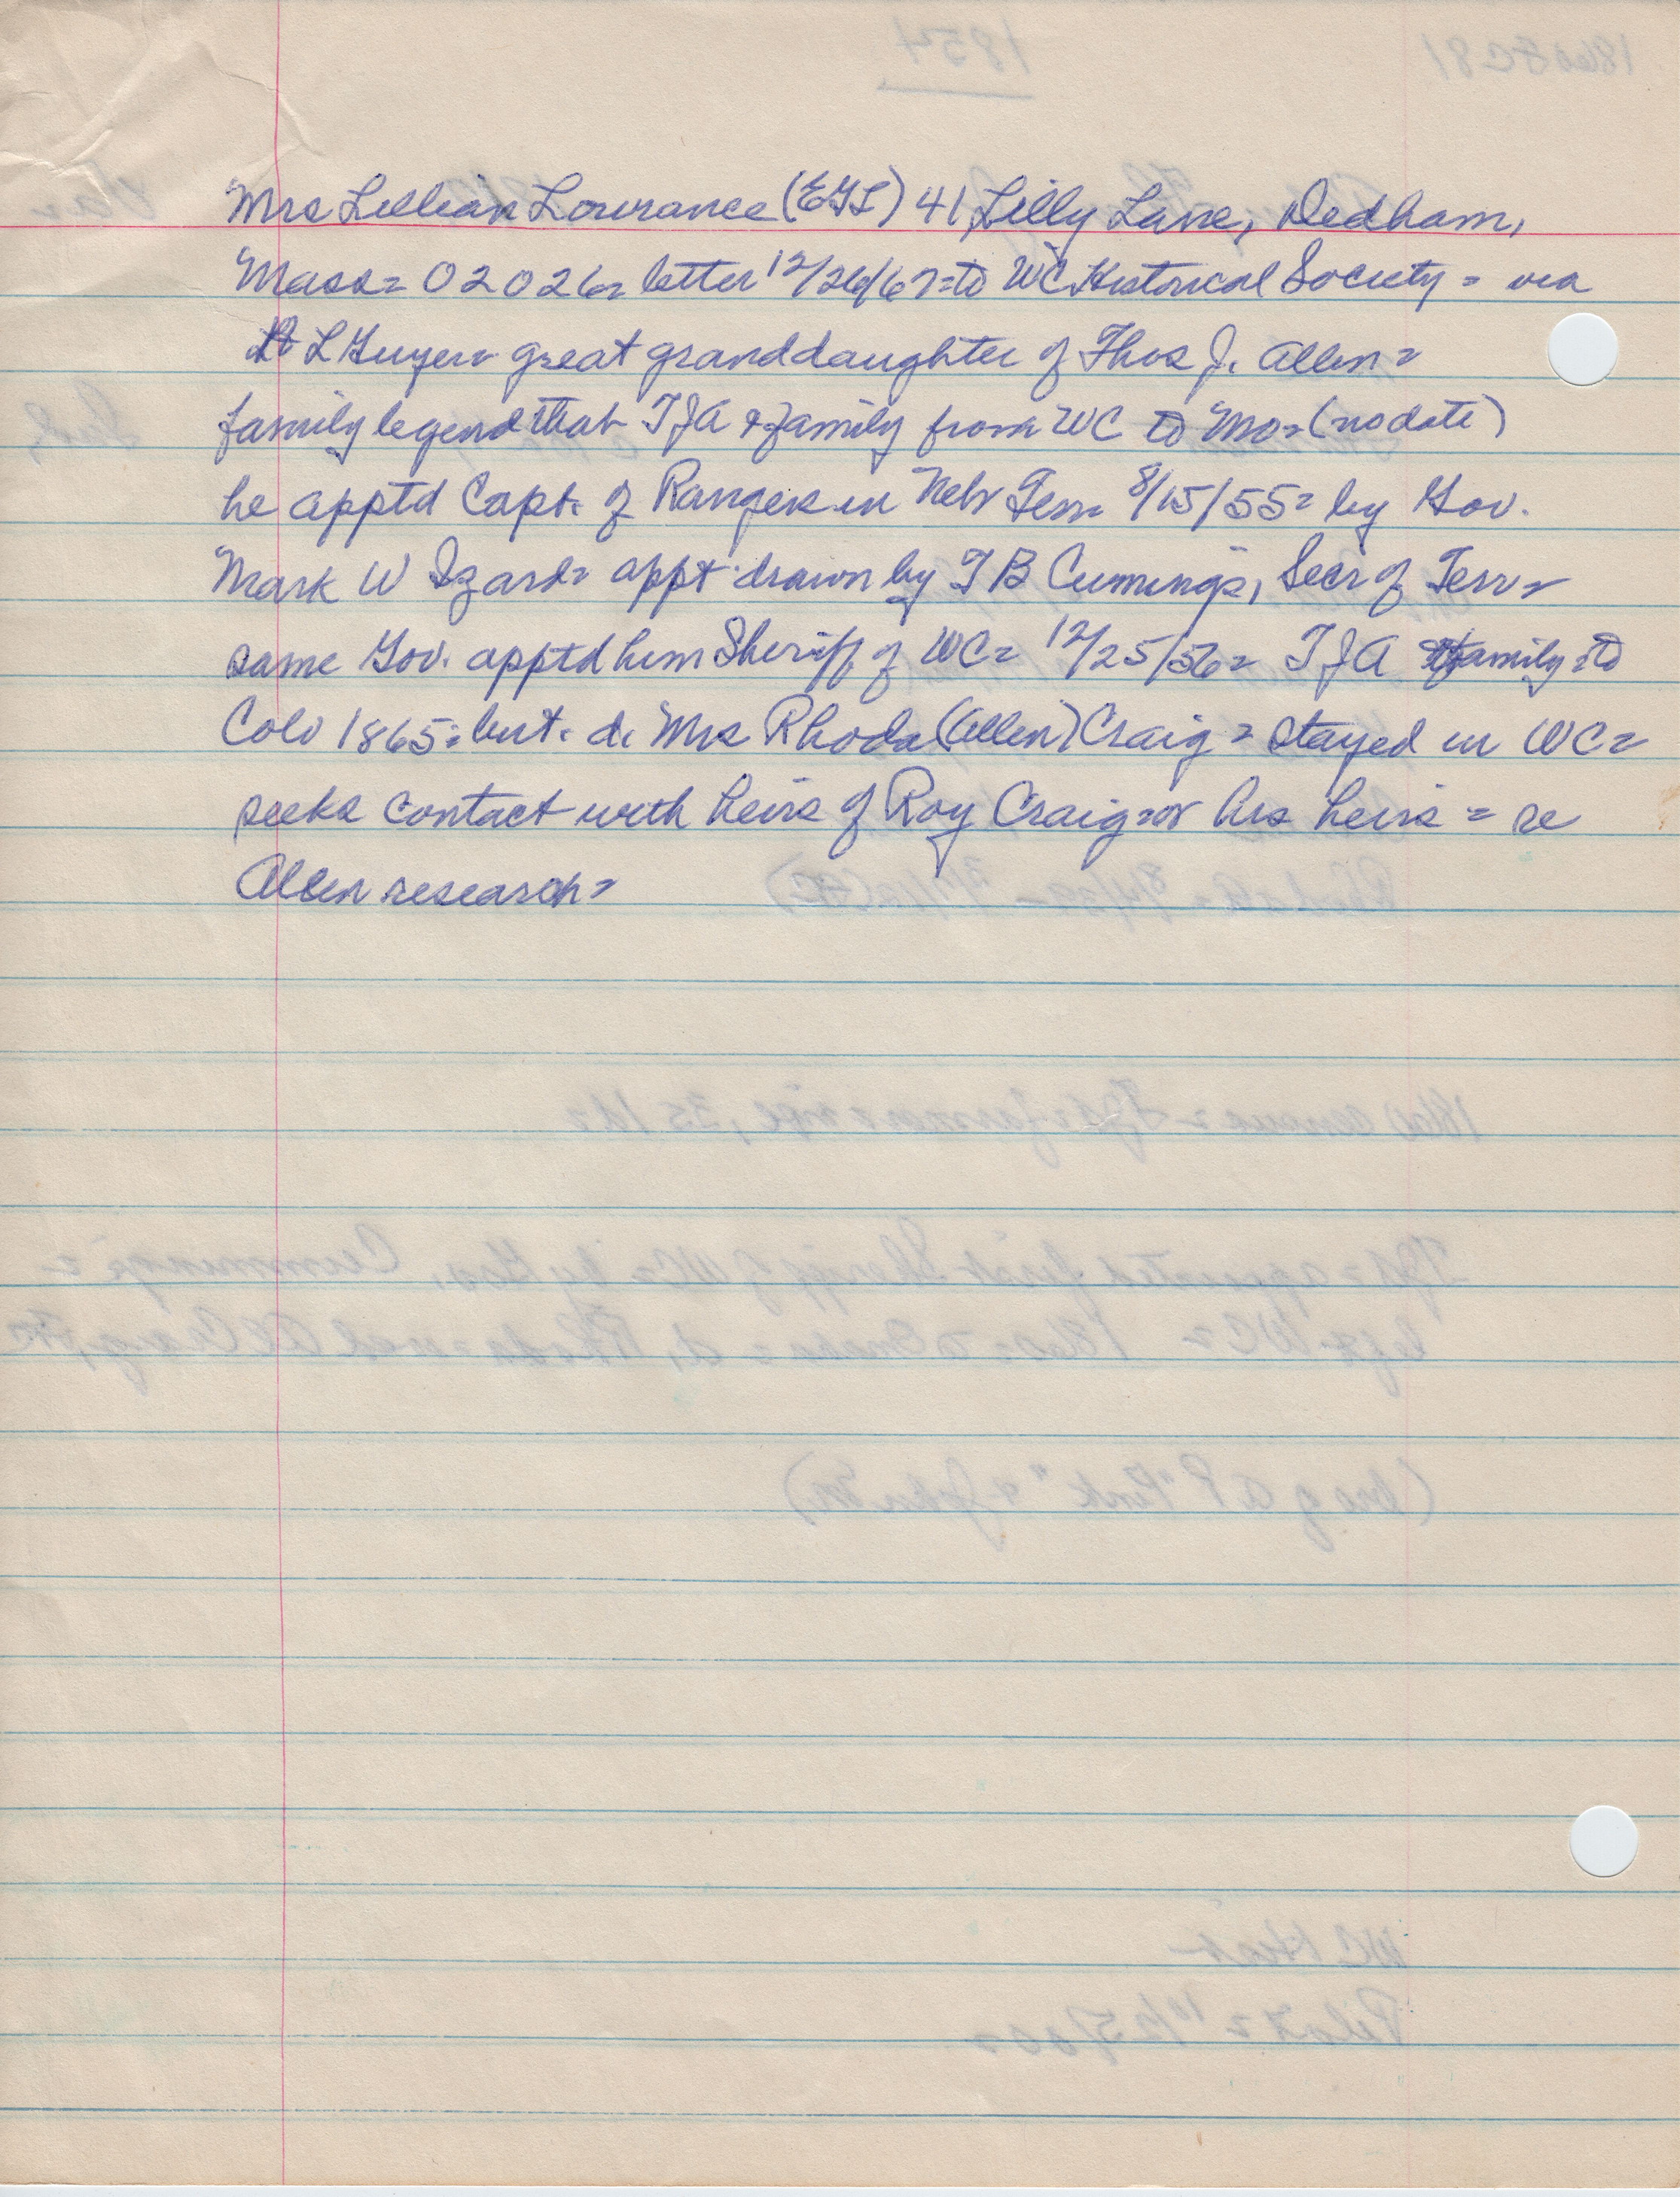 Mrs Lillian Lowrance (EGL) 41 Lilly Lane, Dedham,
Mass= 02026= letter 12/26/67= to WC Historical Society = via
L Guyer= great granddaughter of Thos J. Allen=
family legend that TJA & family from WC to Mo= (no date)
he apptd Capt. of Rangers in Nebr Terr= 8/15/55= by Gov.
Mark W Izard= appt drawn by T B Cumming's, Secr of Terr=
same Gov. apptd him Sheriff of WC= 12/25/56= TJA & family= to
Colo 1865= but. d. Mrs Rhoda (Allen) Craig= stayed in WC=
seeks contact with heirs of Roy Craig= or his heirs = re
Allen research=